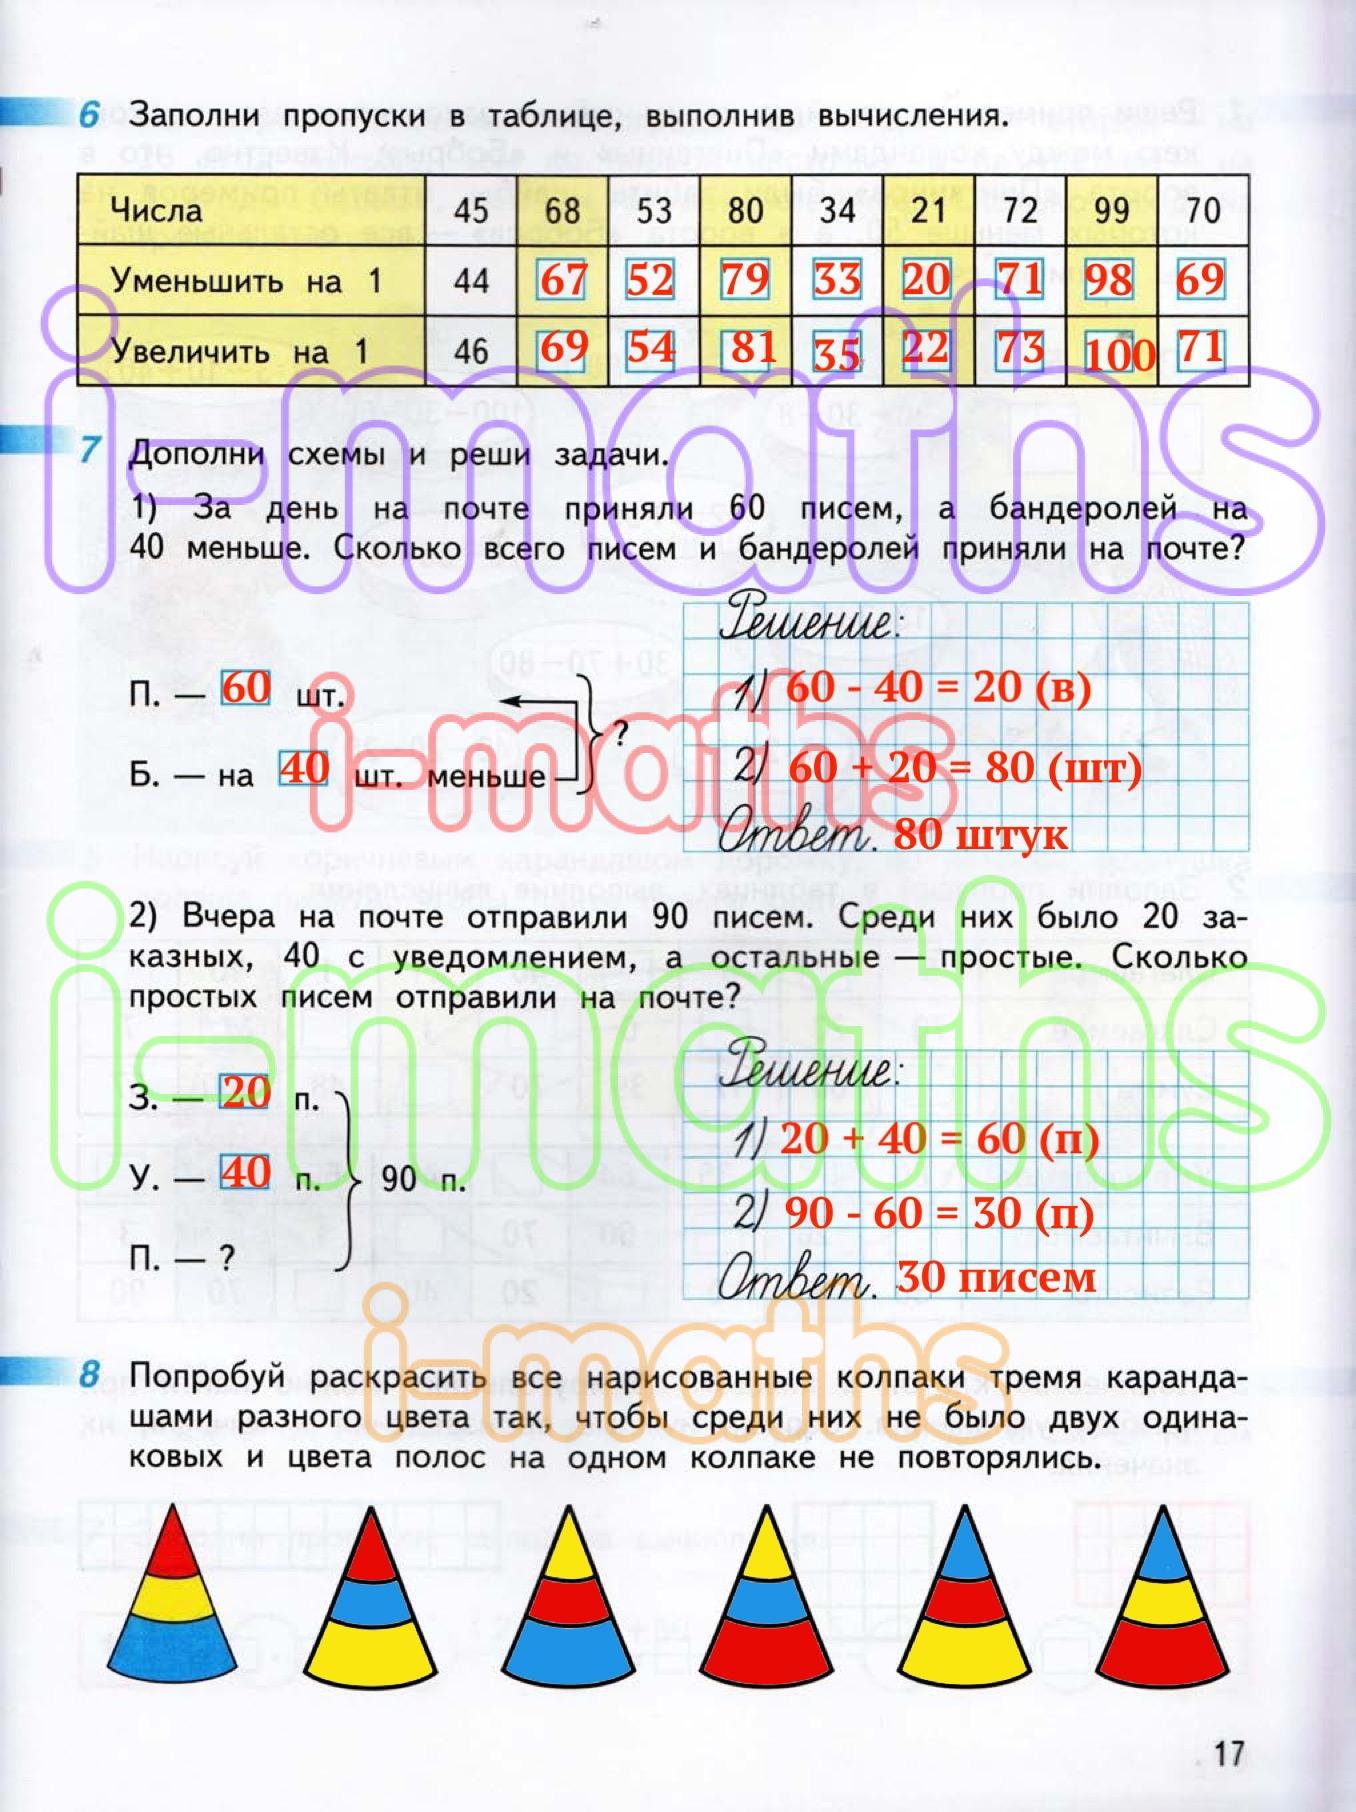 6 Заполни пропуски в таблице, выполнив вычисления.
Числа 45 68 53 80 34 21 72 99 70
Уменьшить на 1 44 67 52 79 33 20 71 98 69
Увеличить на 1 46 69 54 81 35 22 73 100 71
i-maths
7 Дополни схемы и реши задачи.
1) За день на почте приняли 60 писем, а бандеролей на
40 меньше. Сколько всего писем и бандеролей приняли на почте?
П. — 60 шт.
Б. — на 40 шт. меньше
?
Решение:
1) 60 - 40 = 20 (в)
2) 60 + 20 = 80 (шт)
Ответ. 80 штук
i-maths
2) Вчера на почте отправили 90 писем. Среди них было 20 за-
казных, 40 с уведомлением, а остальные — простые. Сколько
простых писем отправили на почте?
i-maths
З. — 20 п.
У. — 40 п.
П. — ?
90 п.
Решение:
1) 20 + 40 = 60 (п)
2) 90 - 60 = 30 (п)
Ответ. 30 писем
i-maths
8 Попробуй раскрасить все нарисованные колпаки тремя каранда-
шами разного цвета так, чтобы среди них не было двух одина-
ковых и цвета полос на одном колпаке не повторялись.
17